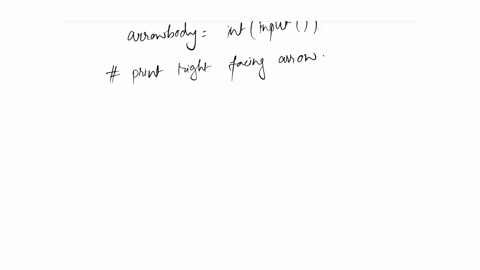 arrowbody = int(input())
# print right facing arrow.